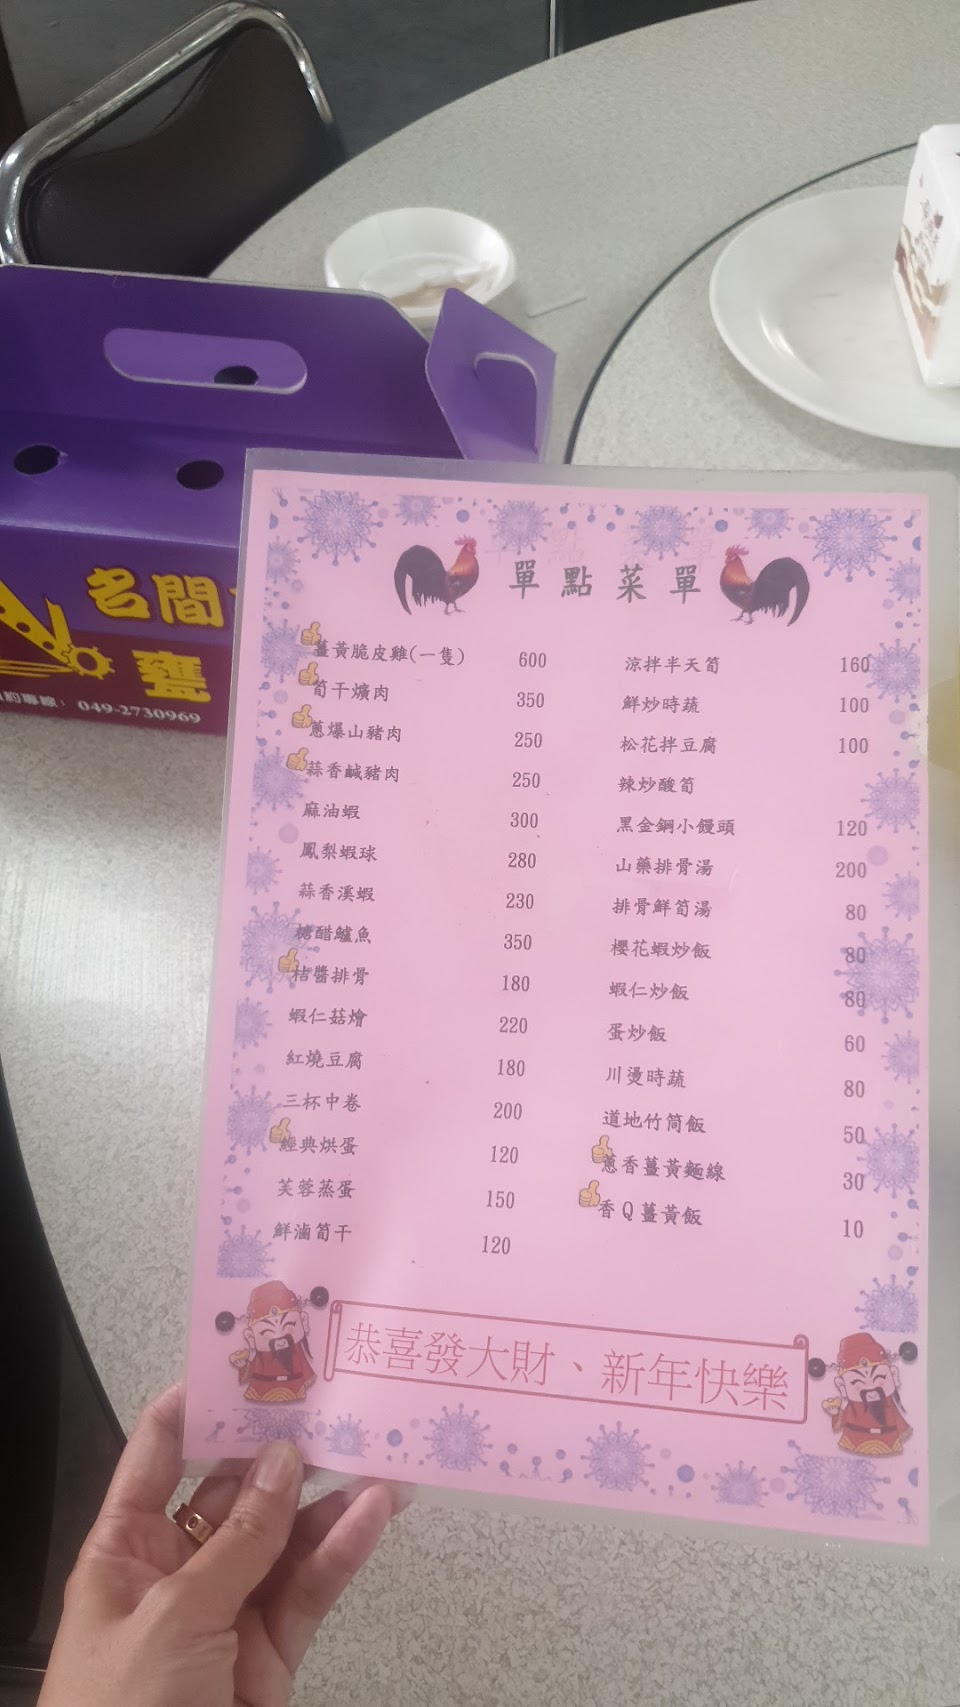 名間
甕
約專線：049-2730969
單點菜單
薑黃脆皮雞(一隻) 600
筍干爌肉 350
蔥爆山豬肉 250
蒜香鹹豬肉 250
麻油蝦 300
鳳梨蝦球 280
蒜香溪蝦 230
糖醋鱸魚 350
桔醬排骨 180
蝦仁菇燴 220
紅燒豆腐 180
三杯中卷 200
經典烘蛋 120
芙蓉蒸蛋 150
鮮滷筍干 120
涼拌半天筍 160
鮮炒時蔬 100
松花拌豆腐 100
辣炒酸筍
黑金鋼小饅頭 120
山藥排骨湯 200
排骨鮮筍湯 80
櫻花蝦炒飯 80
蝦仁炒飯 80
蛋炒飯 60
川燙時蔬 80
道地竹筒飯 50
蔥香薑黃麵線 30
香Q薑黃飯 10
恭喜發大財、新年快樂